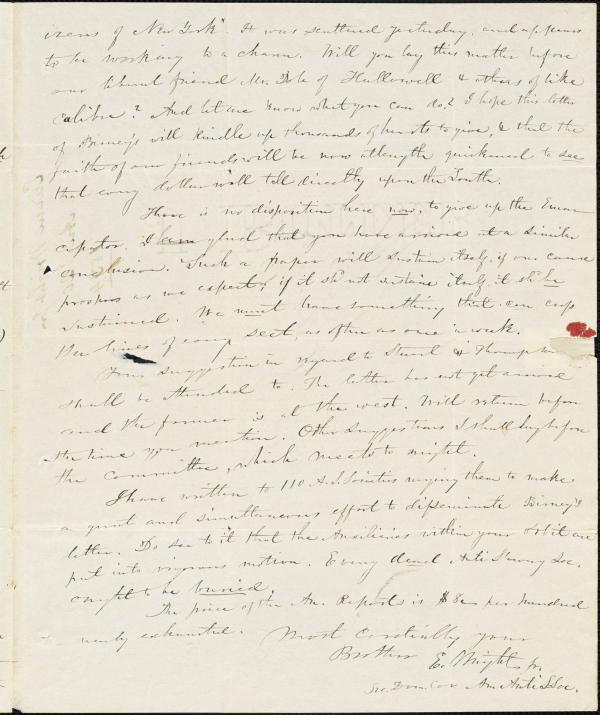 izens of New York". It was scattered yesterday, and appears
to be working to a charm. Will you lay this matter before
our liberal friend Mr. Dole of Hallowell & others of like
calibre? And let me know what you can do? I hope this letter
of Birney's will kindle up thousands of hearts to give, & that the
faith of our friends will be now at length quickened to see
that every dollar will tell directly upon the South.
There is no disposition here now, to give up the Eman-
cipator. I am glad that you have arrived at a similar
conclusion. Such a paper will sustain itself, if our cause
prospers as we expect, & if it shd not sustain itself, it shd be
sustained. We must have something that can
the lines of every sect, as often as once a week.
Your suggestion in regard to & Thompson
shall be attended to. The latter has not yet arrived
and the former is at the west. Will return before
the time you mention. Other suggestions I shall lay before
the committee, which meets to night.
I have written to 110 A.S. Societies urging them to make
a great and simultaneous effort to disseminate Birney's
letter. Do see to it that the Auxiliaries within your orbit are
put into vigorous motion. Every dead Anti Slavery Soc.
ought to be buried.
The price of the An. Report is $8 per hundred
nearly exhausted. Most cordially your
Brother E. Wright, Jr.
Sec. Dom. Cor Am Anti S. Soc.